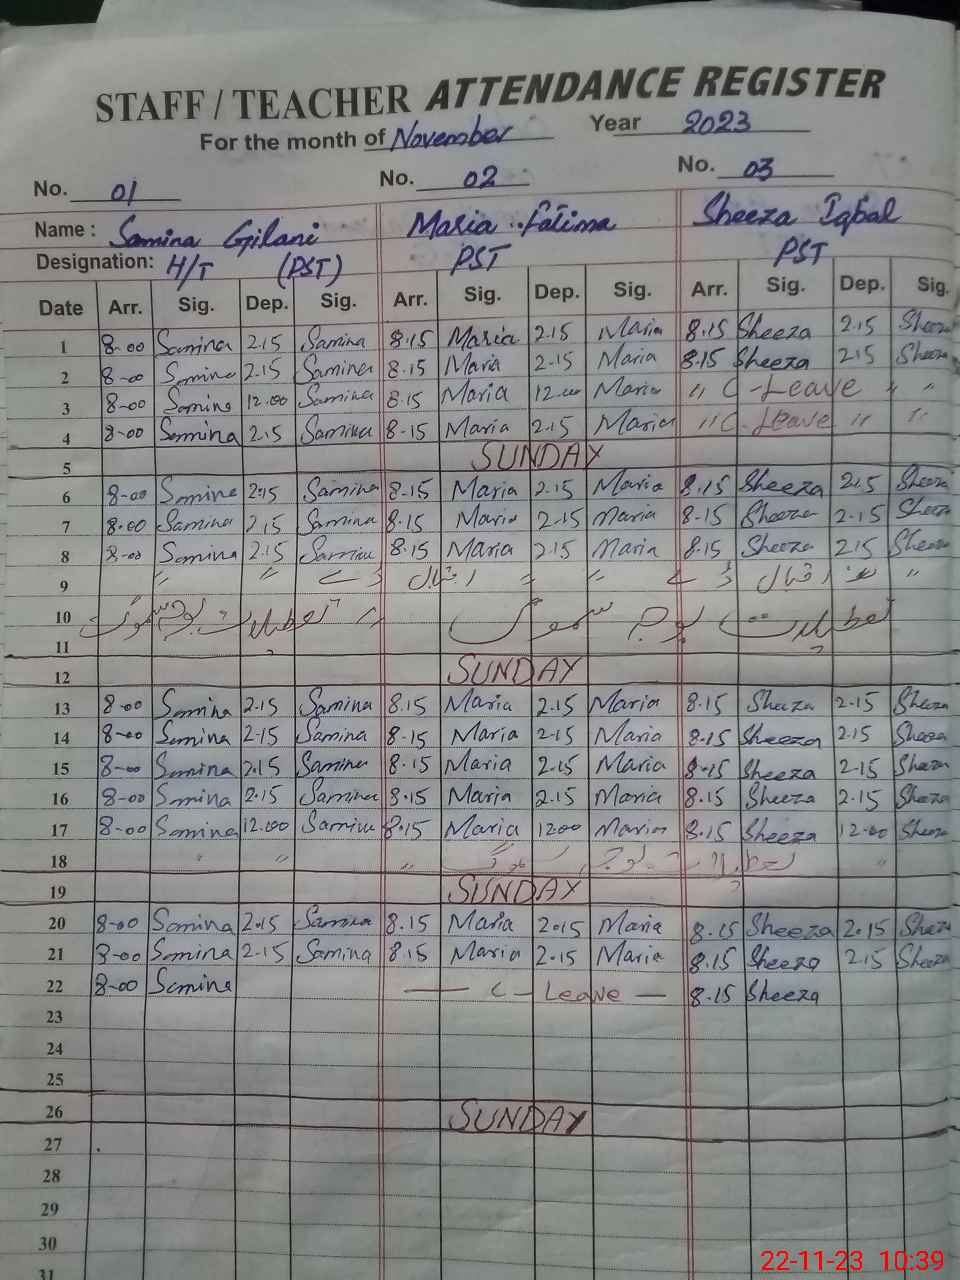 STAFF / TEACHER ATTENDANCE REGISTER
For the month of November Year 2023
No. 01 No. 02 No. 03
Name : Samina Gilani Maria Fatima Sheeza Iqbal
Designation: H/T (PST) PST PST
Date Arr. Sig. Dep. Sig. Arr. Sig. Dep. Sig. Arr. Sig. Dep. Sig.
1 8-00 Samina 2.15 Samina 8.15 Maria 2.15 Maria 8.15 Sheeza 2.15 Sheeza
2 8-00 Samina 2.15 Samina 8.15 Maria 2.15 Maria 8.15 Sheeza 2.15 Sheeza
3 8-00 Samina 12.00 Samina 8.15 Maria 12.00 Maria " C-Leave " "
4 8-00 Samina 2.15 Samina 8-15 Maria 2.15 Maria " C-Leave " "
5 SUNDAY
6 8-00 Samina 2.15 Samina 8-15 Maria 2.15 Maria 8.15 Sheeza 2.15 Sheeza
7 8.00 Samina 2.15 Samina 8-15 Maria 2-15 Maria 8-15 Sheeza 2-15 Sheeza
8 8-00 Samina 2.15 Samina 8.15 Maria 2.15 Maria 8.15 Sheeza 2.15 Sheeza
9 " " ڈے اقبال " " ڈے اقبال "
10 تعطیلات بوجہ سموگ " تعطیلات بوجہ سموگ
11
12 SUNDAY
13 8-00 Samina 2.15 Samina 8.15 Maria 2.15 Maria 8.15 Sheeza 2.15 Sheeza
14 8-00 Samina 2-15 Samina 8-15 Maria 2-15 Maria 8-15 Sheeza 2.15 Sheeza
15 8-00 Samina 2.15 Samina 8.15 Maria 2.15 Maria 8-15 Sheeza 2-15 Sheeza
16 8-00 Samina 2.15 Samina 8.15 Maria 2.15 Maria 8.15 Sheeza 2.15 Sheeza
17 8-00 Samina 12.00 Samina 8.15 Maria 12.00 Maria 8.15 Sheeza 12-00 Sheeza
18 " " " تعطیلات بوجہ سموگ "
19 SUNDAY
20 8-00 Samina 2.15 Samina 8.15 Maria 2.15 Maria 8.15 Sheeza 2.15 Sheeza
21 8-00 Samina 2-15 Samina 8.15 Maria 2.15 Maria 8.15 Sheeza 2.15 Sheeza
22 8-00 Samina — C-Leave — 8.15 Sheeza
23
24
25
26 SUNDAY
27
28
29
30
31
22-11-23 10:39